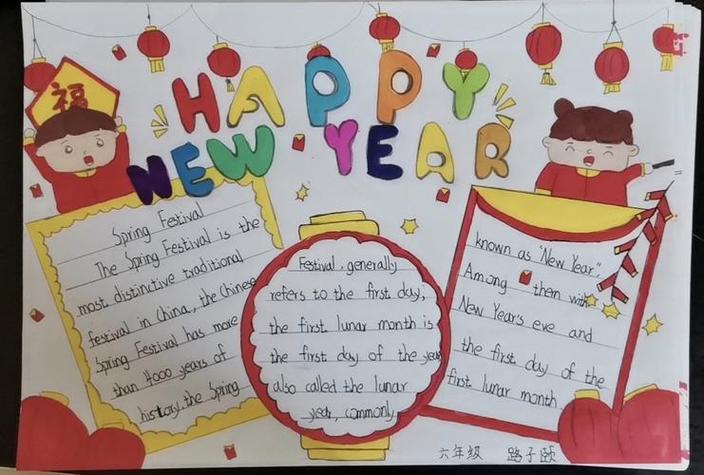 HAPPY
NEW YEAR
福
Spring Festival
The Spring Festival is the
most distinctive traditional
festival in China, the Chinese
Spring Festival has more
than 4000 years of
history.the Spring
Festival, generally
refers to the first day,
the first lunar month is
the first day of the year
also called the lunar
year, commonly
known as "New Year".
Among them with
New Year's eve and
the first day of the
first lunar month
六年级 路子颐